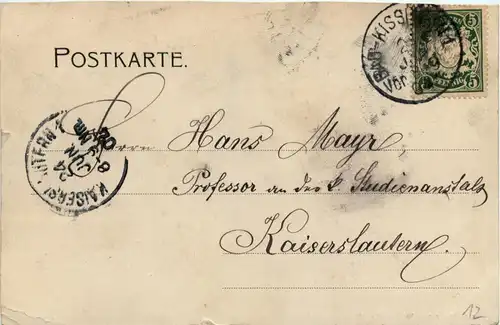 POSTKARTE.
BAD-KISSI
VOR
5 5
KAISERSLAUTERN
24
JUN
8-9
Herrn Hans Mayr
Professor an der k. Studienanstalt
Kaiserslautern.
12